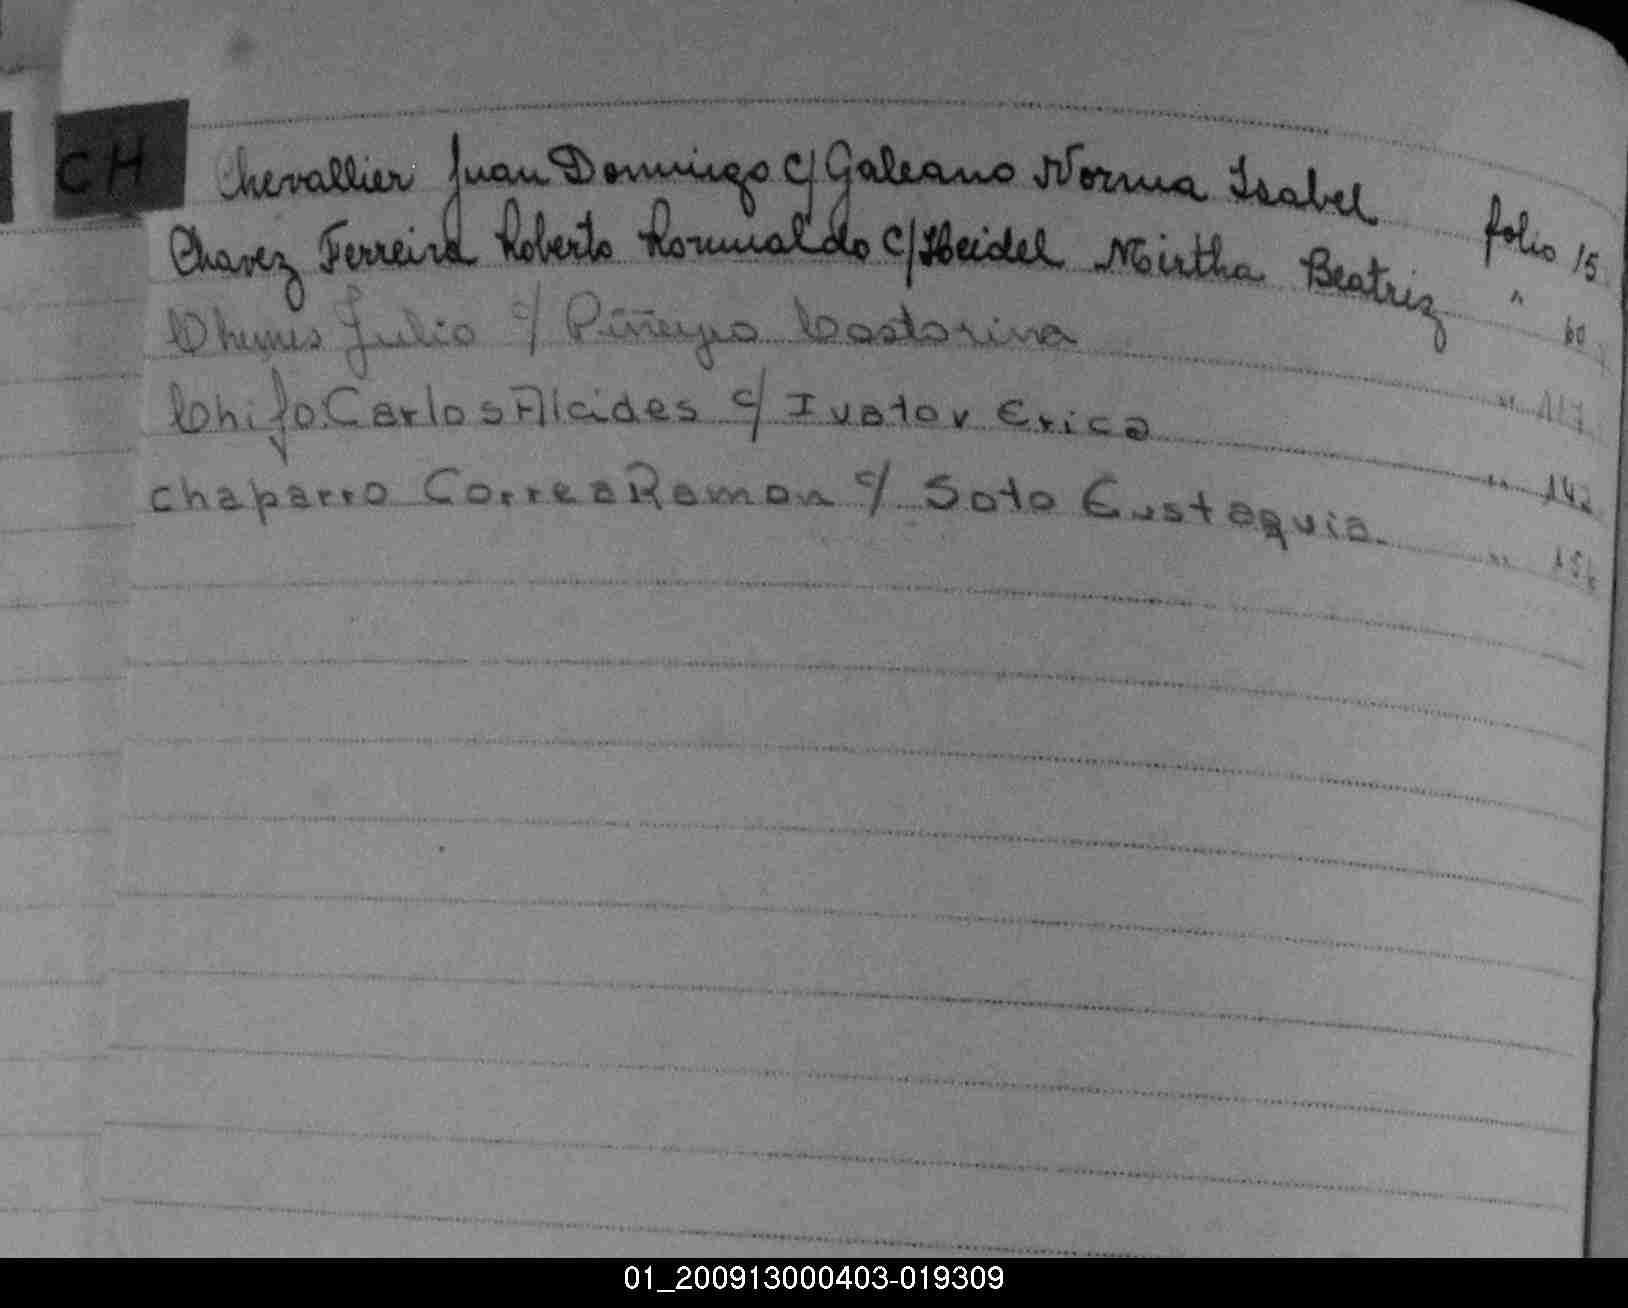 CH
Chevallier Juan Domingo c/ Galeano Norma Isabel folio 15
Chavez Ferreira Roberto Romualdo c/ Heidel Mirtha Beatriz " 60
Chemes Julio c/ Piñeyro Castorina " 117
Chifo Carlos Alcides c/ Ivatov Erica " 142
chaparro Correa Ramon c/ Soto Eustaquia "
01_200913000403-019309